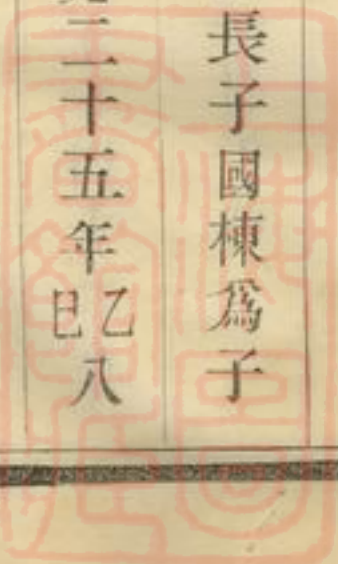 長子國棟爲子
二十五年乙巳八